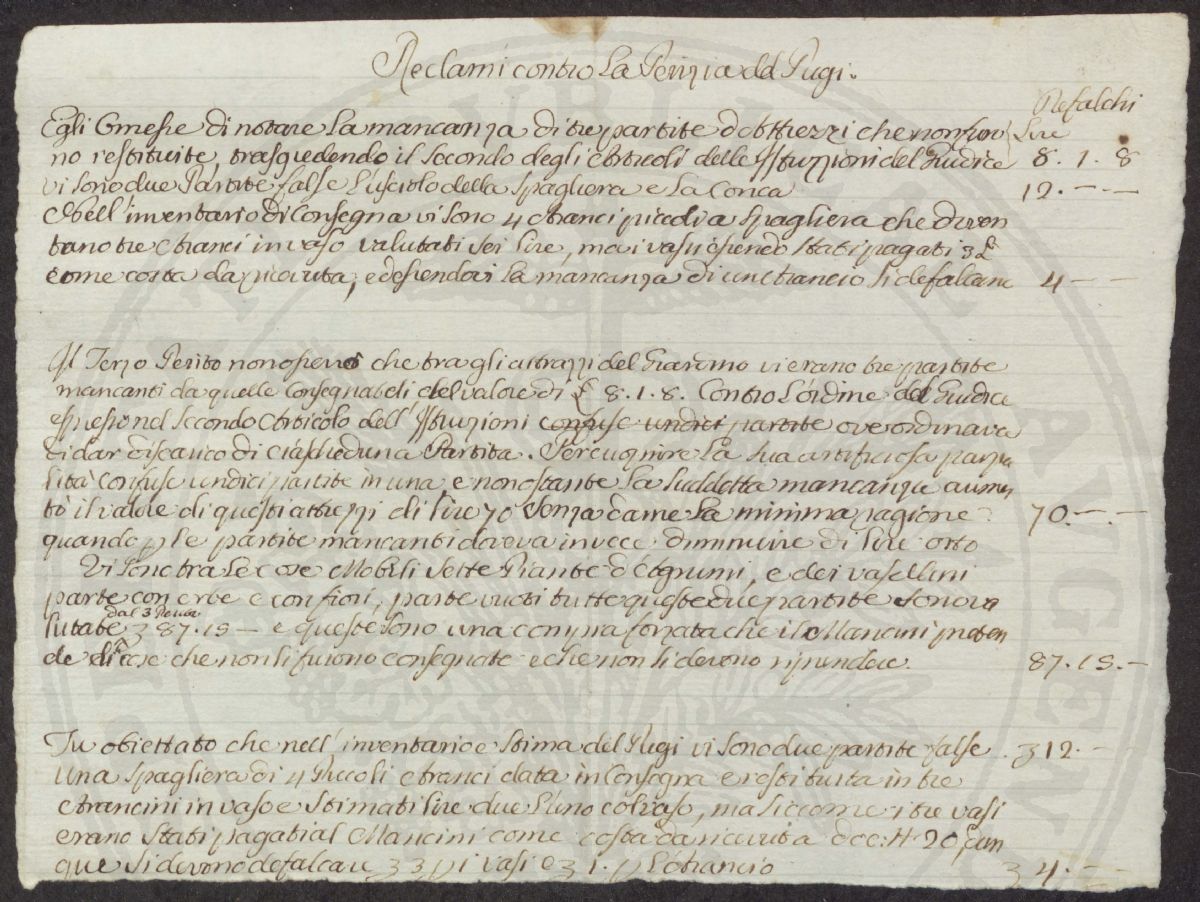 Reclami contro La Perizia del Pugi.
Refalchi
Egli Omesse di notare La mancanza di tre partite d'Attrezzi che non furo Lire
no restituite, trasguedendo il secondo degli Articoli delle Istruzioni del Giudice 8. 1. 8
vi sono due Partite false L'usciolo della Spagliera e La Conca 12. — —
Nell'inventario di Consegna vi sono 4 Aranci piccoli a Spagliera che diven
tano tre Aranci in vaso valutati sei lire, ma i vasi essendo stati pagati 3 £
come costa da ricevuta, ed essendovi la mancanza di un'Arancio si defalcano 4 — —
Il Terzo Perito non osservò che tra gli attrazzi del Giardino vi erano tre partite
mancanti da quelle Consegnateli del valore di £ 8. 1. 8. Contro L'ordine del Giudice
espresso nel secondo Articolo dell'Istruzioni confuse undici partite ove ordinava
di dar discarico di ciascheduna Partita. Per cuoprire La sua artificiosa parzia
lità confuse undici partite in una e nonostante La suddetta mancanza aumen
tò il valore di questi attrezzi di lire 70 senza darne La minima ragione 70. — —
quando p le partite mancanti doveva invece diminuire di lire otto
Vi sono tra Le cose Mobili sette Piante d'Agrumi, e dei vasellini
parte con erbe e con fiori, parte vuoti tutte queste due partite sono va
dal 3 Perito
lutate 3 87. 15 — e queste sono una compra forzata che il Mancini preten
de di cose che non li furono consegnate e che non si devono riprendere. 87. 15. —
Fu obiettato che nell'inventario e stima del Pugi vi sono due partite false 3 12. —
una Spagliera di 4 Piccoli Aranci data in Consegna e restituita in tre
Arancini in vaso e stimati lire due L'uno col vaso, ma siccome i tre vasi
erano stati pagati al Mancini come costa da ricevuta doc: N 20, dun
que si devono defalcare 3 3 p i vasi e 3 1. p L'Arancio 3 4. —